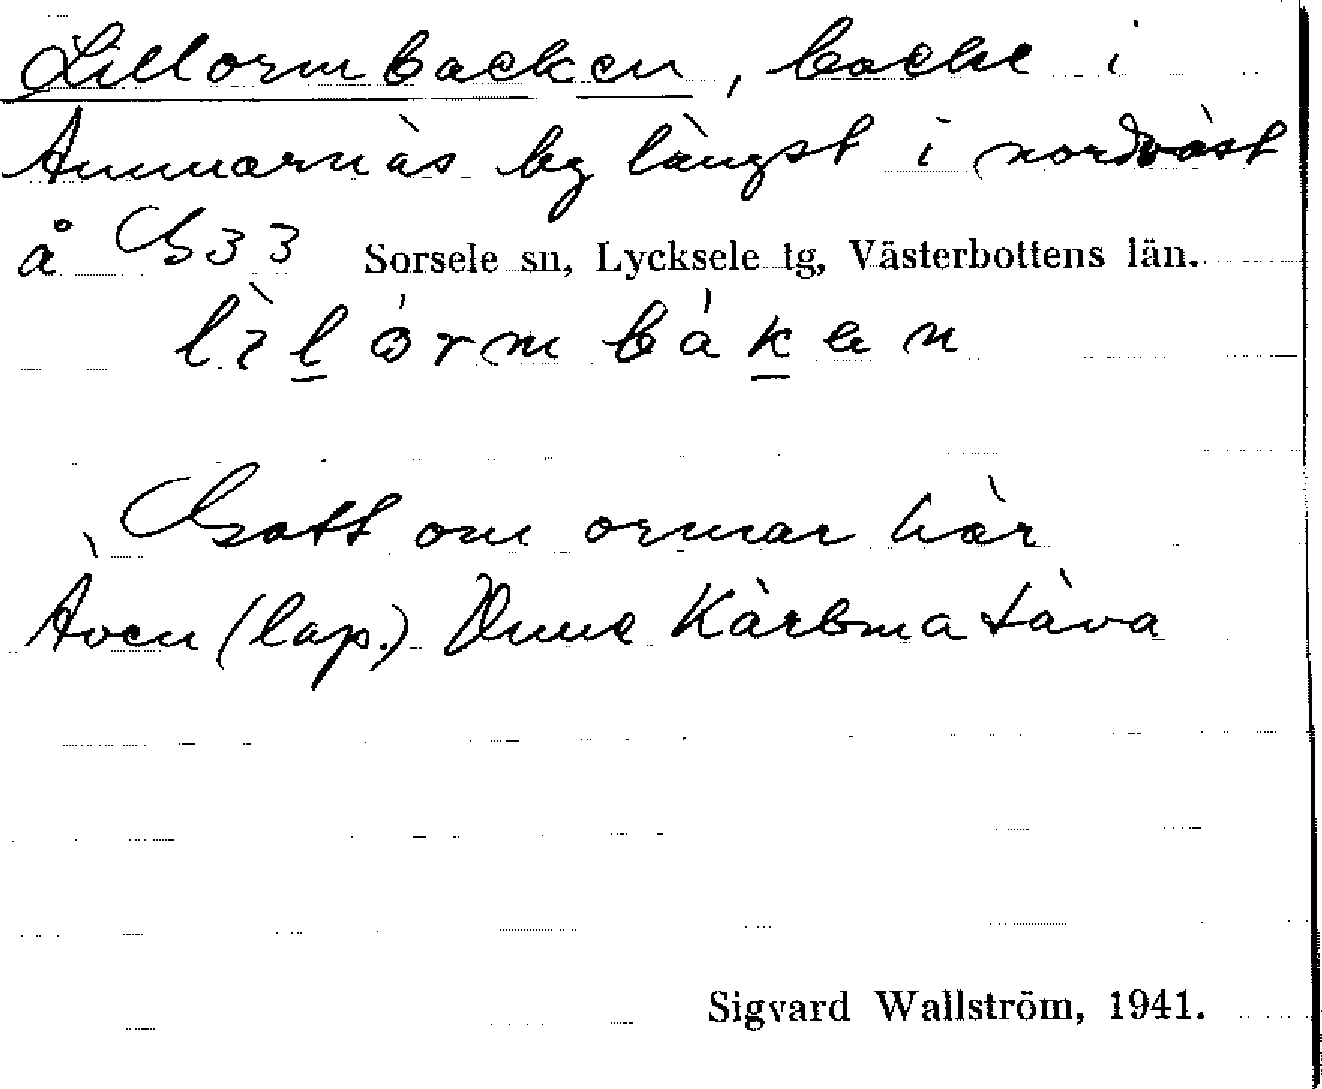 Lillormbacken, backe i
Ammarnäs by längst i nordväst
å G33 Sorsele sn, Lycksele tg, Västerbottens län.
lìlórmbákan
Gott om ormar här
Även (lap.) Unne Kärbma täva
Sigvard Wallström, 1941.